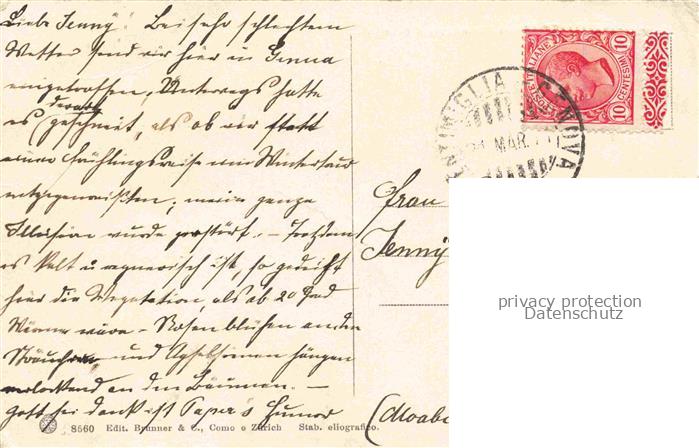 Liebe Jenny! Bei sehr schlechtem
Wetter sind wir hier in Genua
eingetroffen, Unterwegs hatte
es derart geschneit, als ob wir statt
einer Frühlingsreise ein Winterland
entgegenreißten; meine ganze
Illusion wurde zerstört. – Trotzdem
es kalt u regnerisch ist, so gedeiht
hier die Vegetation, als ob 20 Grad
Wärme wäre – Rosen blühen an den
Sträuchern und Apfelsinen hängen
verlockend an den Bäumen. –
Gott sei dank ist Papa's Humor
8560 Edit. Brunner & C., Como e Zürich Stab. eliografico.
POSTE ITALIANE
CENTESIMI
10
10
VENTIMIGLIA GENOVA
MAR. 11
Frau
Jenny
(Moabi
privacy protection
Datenschutz